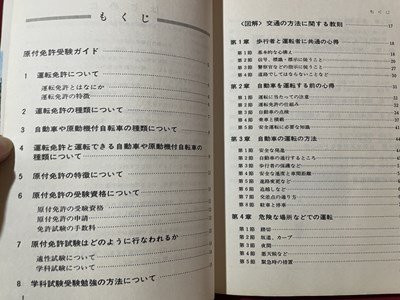 もくじ
原付免許受験ガイド
1 運転免許について
運転免許とはなにか
運転免許の特徴
2 運転免許の種類について
3 自動車や原動機付自転車の種類について
4 運転免許と運転できる自動車や原動機付自転車の
種類について
5 原付免許の特徴について
6 原付免許の受験資格について
原付免許の受験資格
原付免許の申請
免許試験の手数料
7 原付免許試験はどのように行なわれるか
適性試験について
学科試験について
8 学科試験受験勉強の方法について
もくじ
〈図解〉交通の方法に関する教則 17
第1章 歩行者と運転者に共通の心得
第1節 基本的な心構え
第2節 信号、標識・標示に従うこと
第3節 警察官などの指示に従うこと
第4節 道路でしてはならないことなど
第2章 自動車を運転する前の心得
第1節 運転に当たっての注意
第2節 運転免許の仕組み
第3節 自動車の点検
第4節 乗車と積載
第5節 安全運転に必要な知識
第3章 自動車の運転の方法
第1節 安全な発進
第2節 自動車の通行するところ
第3節 歩行者の保護など
第4節 安全な速度と車間距離
第5節 進路変更など
第6節 追越しなど
第7節 交差点の通り方
第8節 駐車と停車
第4章 危険な場所などでの運転
第1節 踏切
第2節 坂道、カーブ
第3節 夜間
第4節 悪天候など
第5節 緊急時の措置